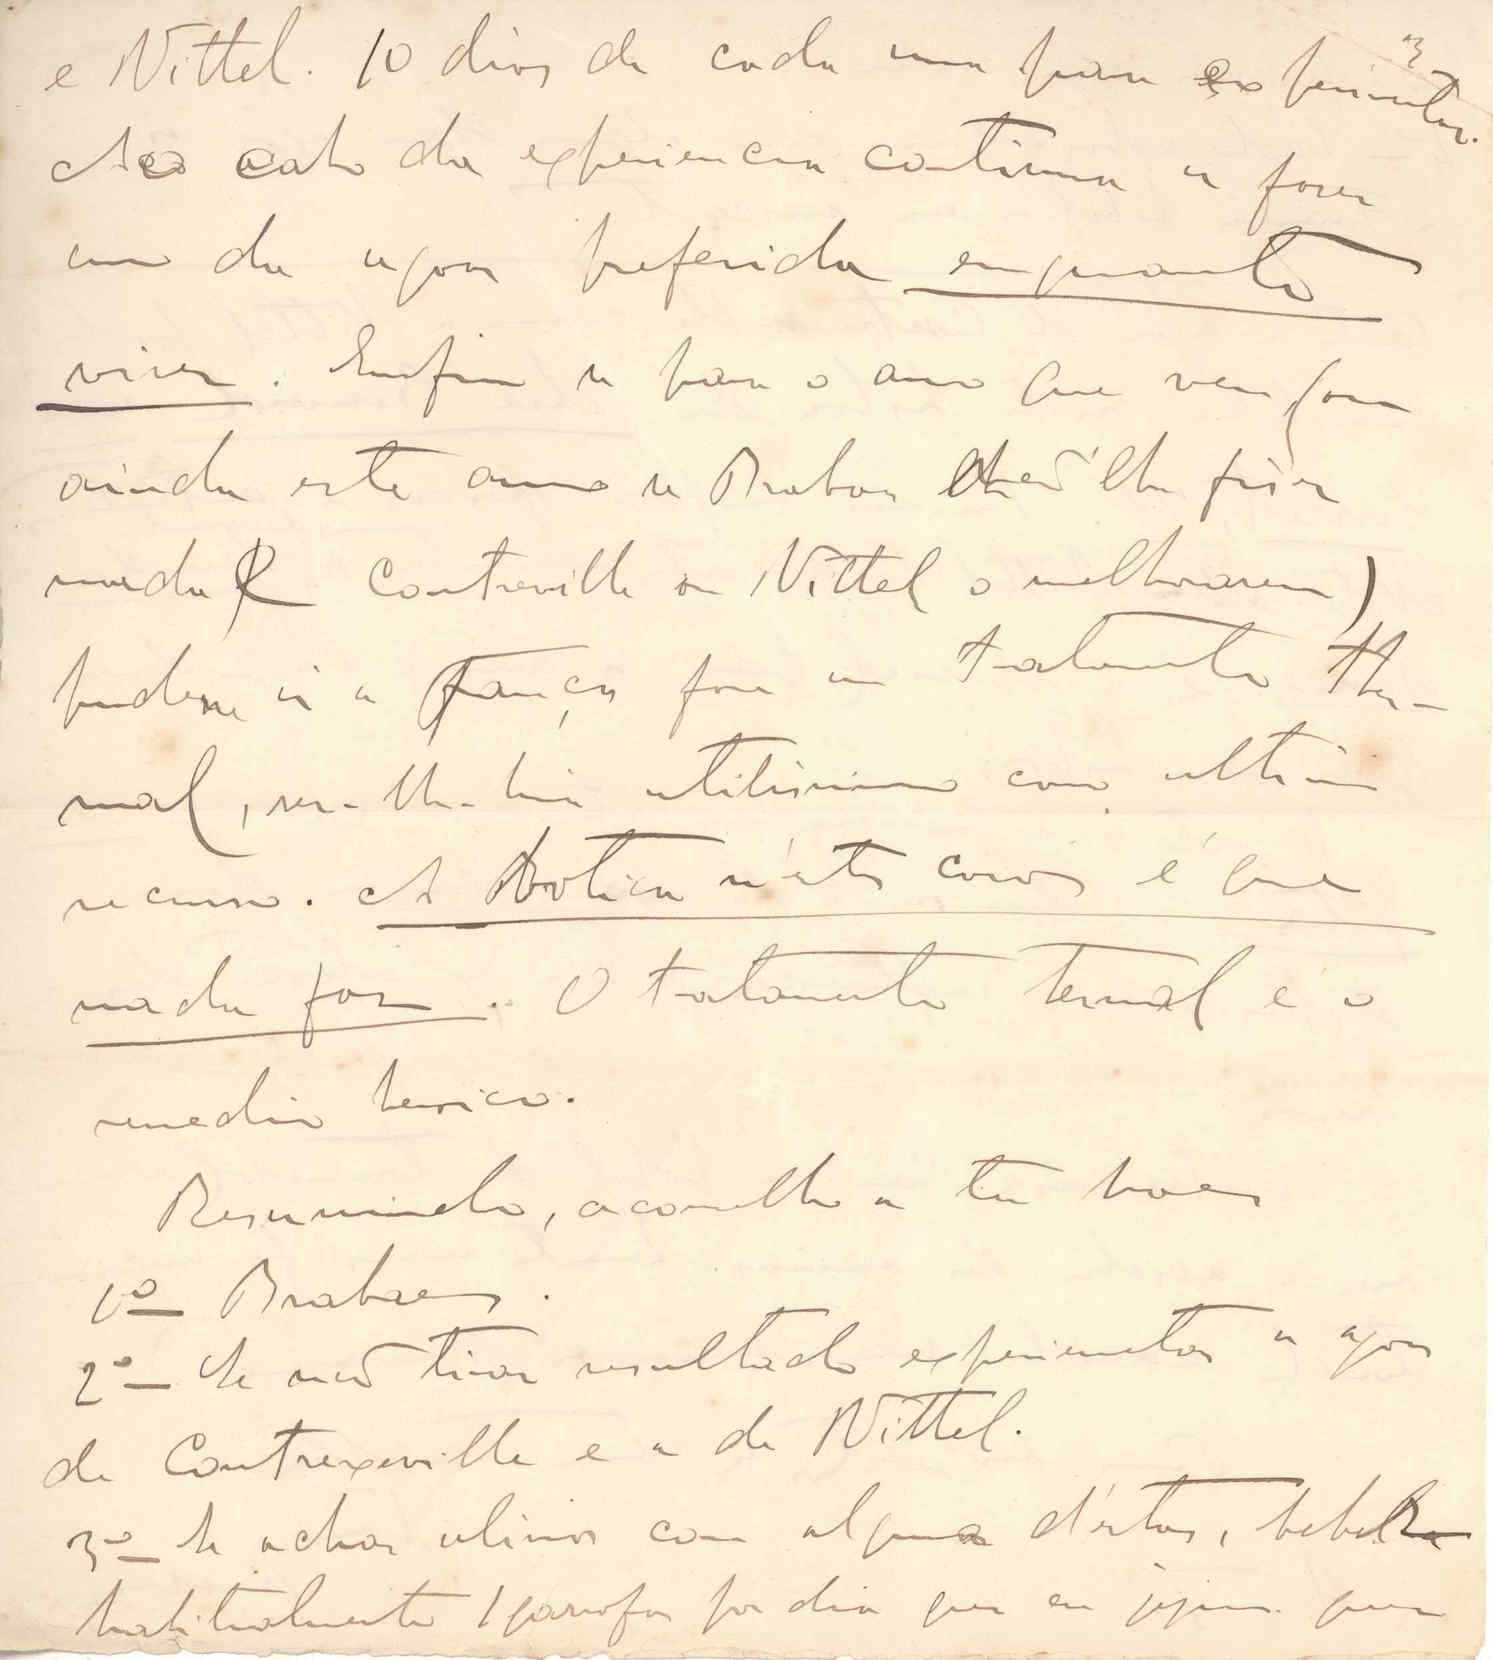 3
e Vittel. 10 dias de cada uma para experimentar.
Ao cabo da experiencia continua a fazer
uso da agoa preferida enquanto
viver. Enfim se para o ano que vem (ou
ainda este anno se Brabaes não lhe fizer
nada e Contreville ou Vittel o melhorarem)
pudesse ir a França fazer um tratamento ther-
mal, ser-lhe-hia utilissimo como ultimo
recurso. A Botica n'estes casos é que
nada faz. O tratamento termal é o
remedio heroico.
Resumindo, aconselho a
1º Brabaes.
2º Se não tirar resultado experimentar a agoa
de Contrexeville e a de Vittel.
3º Se achar alivios com alguma d'estas, bebel-a
habitualmente 1 garrafa por dia quer em jejum quer